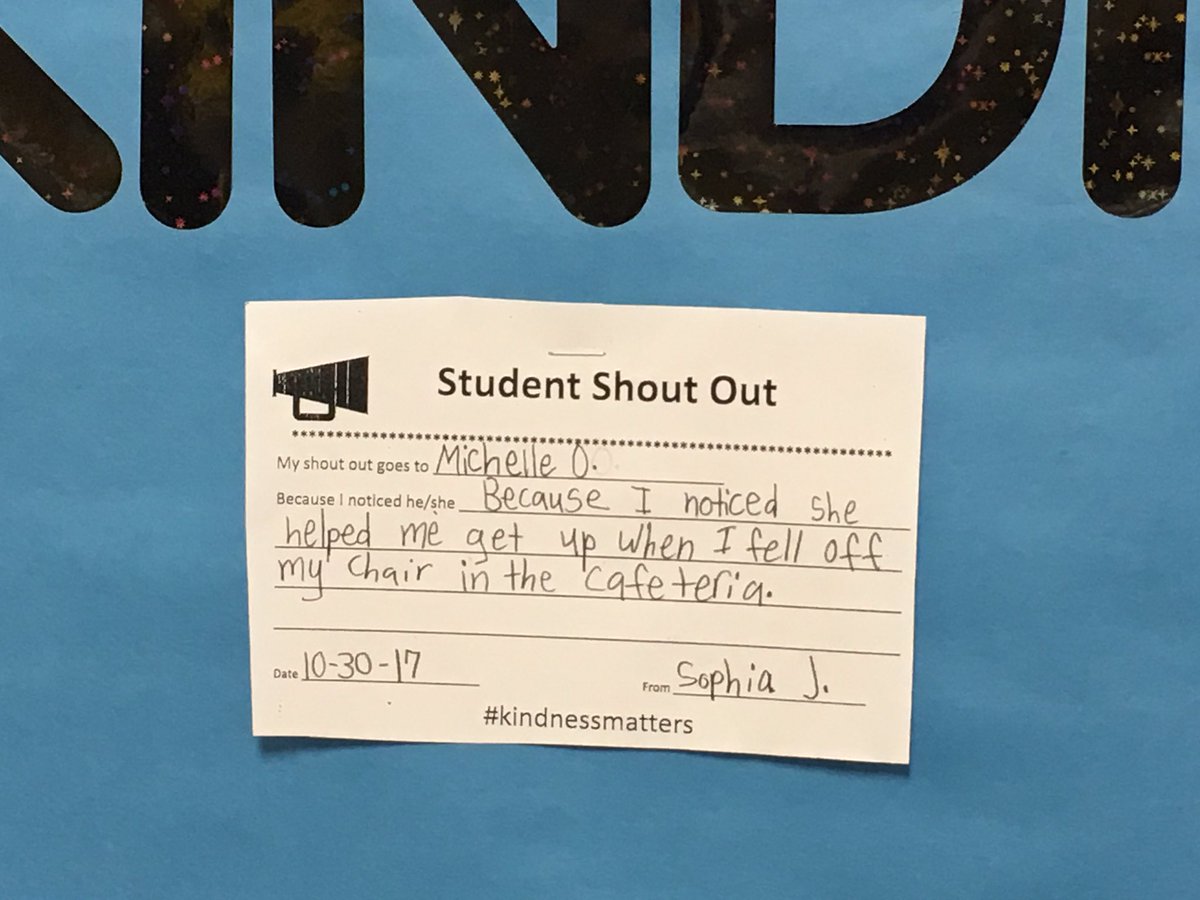 KINDI
Student Shout Out
My shout out goes to Michelle O.
Because I noticed he/she Because I noticed she
helped me get up when I fell off
my chair in the cafeteria.
Date 10-30-17 From Sophia J.
#kindnessmatters